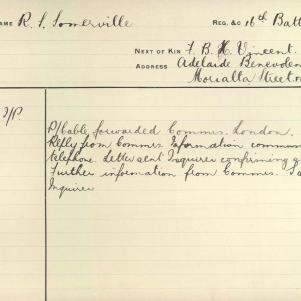 NAME R. S. Somerville REG. &c 16th Batt
NEXT OF KIN F. B. H. Vincent.
ADDRESS Adelaide Benevolen
Morialta Street
P/Cable forwarded Commrs. London.
Reply from Commrs Information commun
telephone. Letter sent Inquirer confirming
Further information from Commrs.
Inquirer